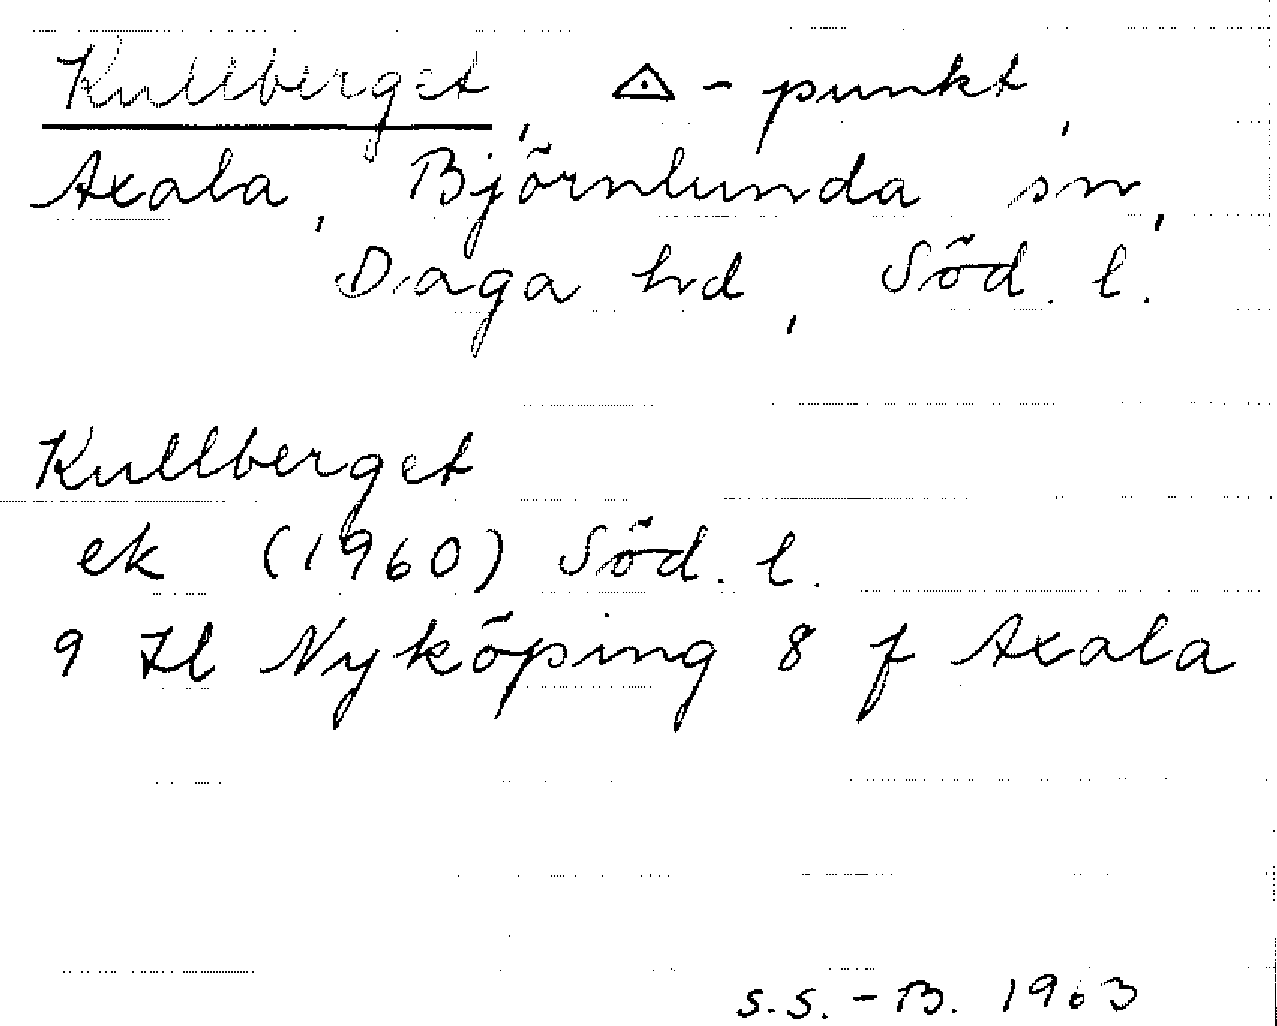 Kullberget, △ - punkt,
Axala, Björnlunda sn,
Daga hd, Söd. l.
Kullberget
ek (1960) Söd. l.
9 Il Nyköping 8 f Axala
S.S. - B. 1963